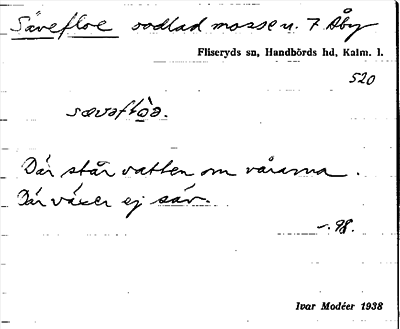 Sävefloe oodlad mosse n. 7 Åby
Fliseryds sn, Handbörds hd, Kalm. l.
520
sævəflòə.
Där står vatten om vårarna.
Där växer ej säv.
98.
Ivar Modéer 1938